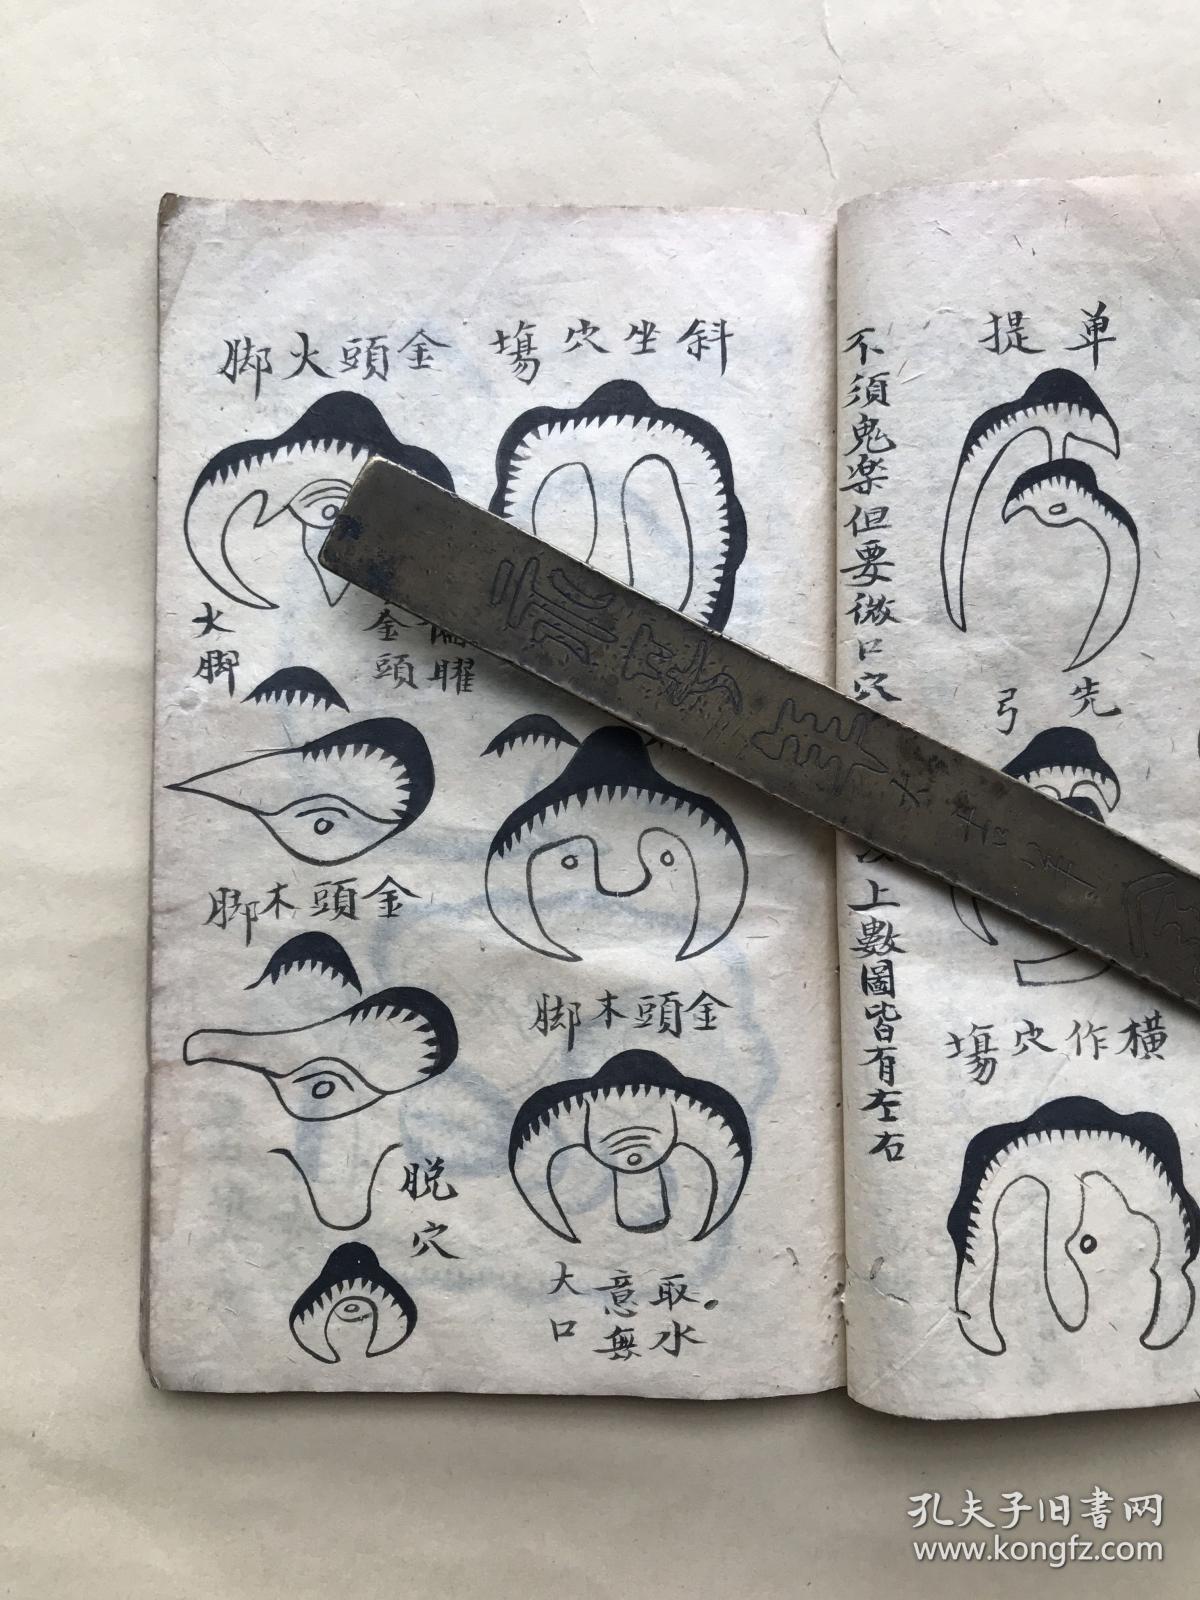 單提
先弓
橫作穴塲
不須鬼樂但要微口穴
上數圖皆有左右
斜坐穴塲
金頭火脚
曜
金頭
火脚
金頭木脚
金頭木脚
脱穴
取水
意無
大口
大吉
孔夫子旧書网
www.kongfz.com